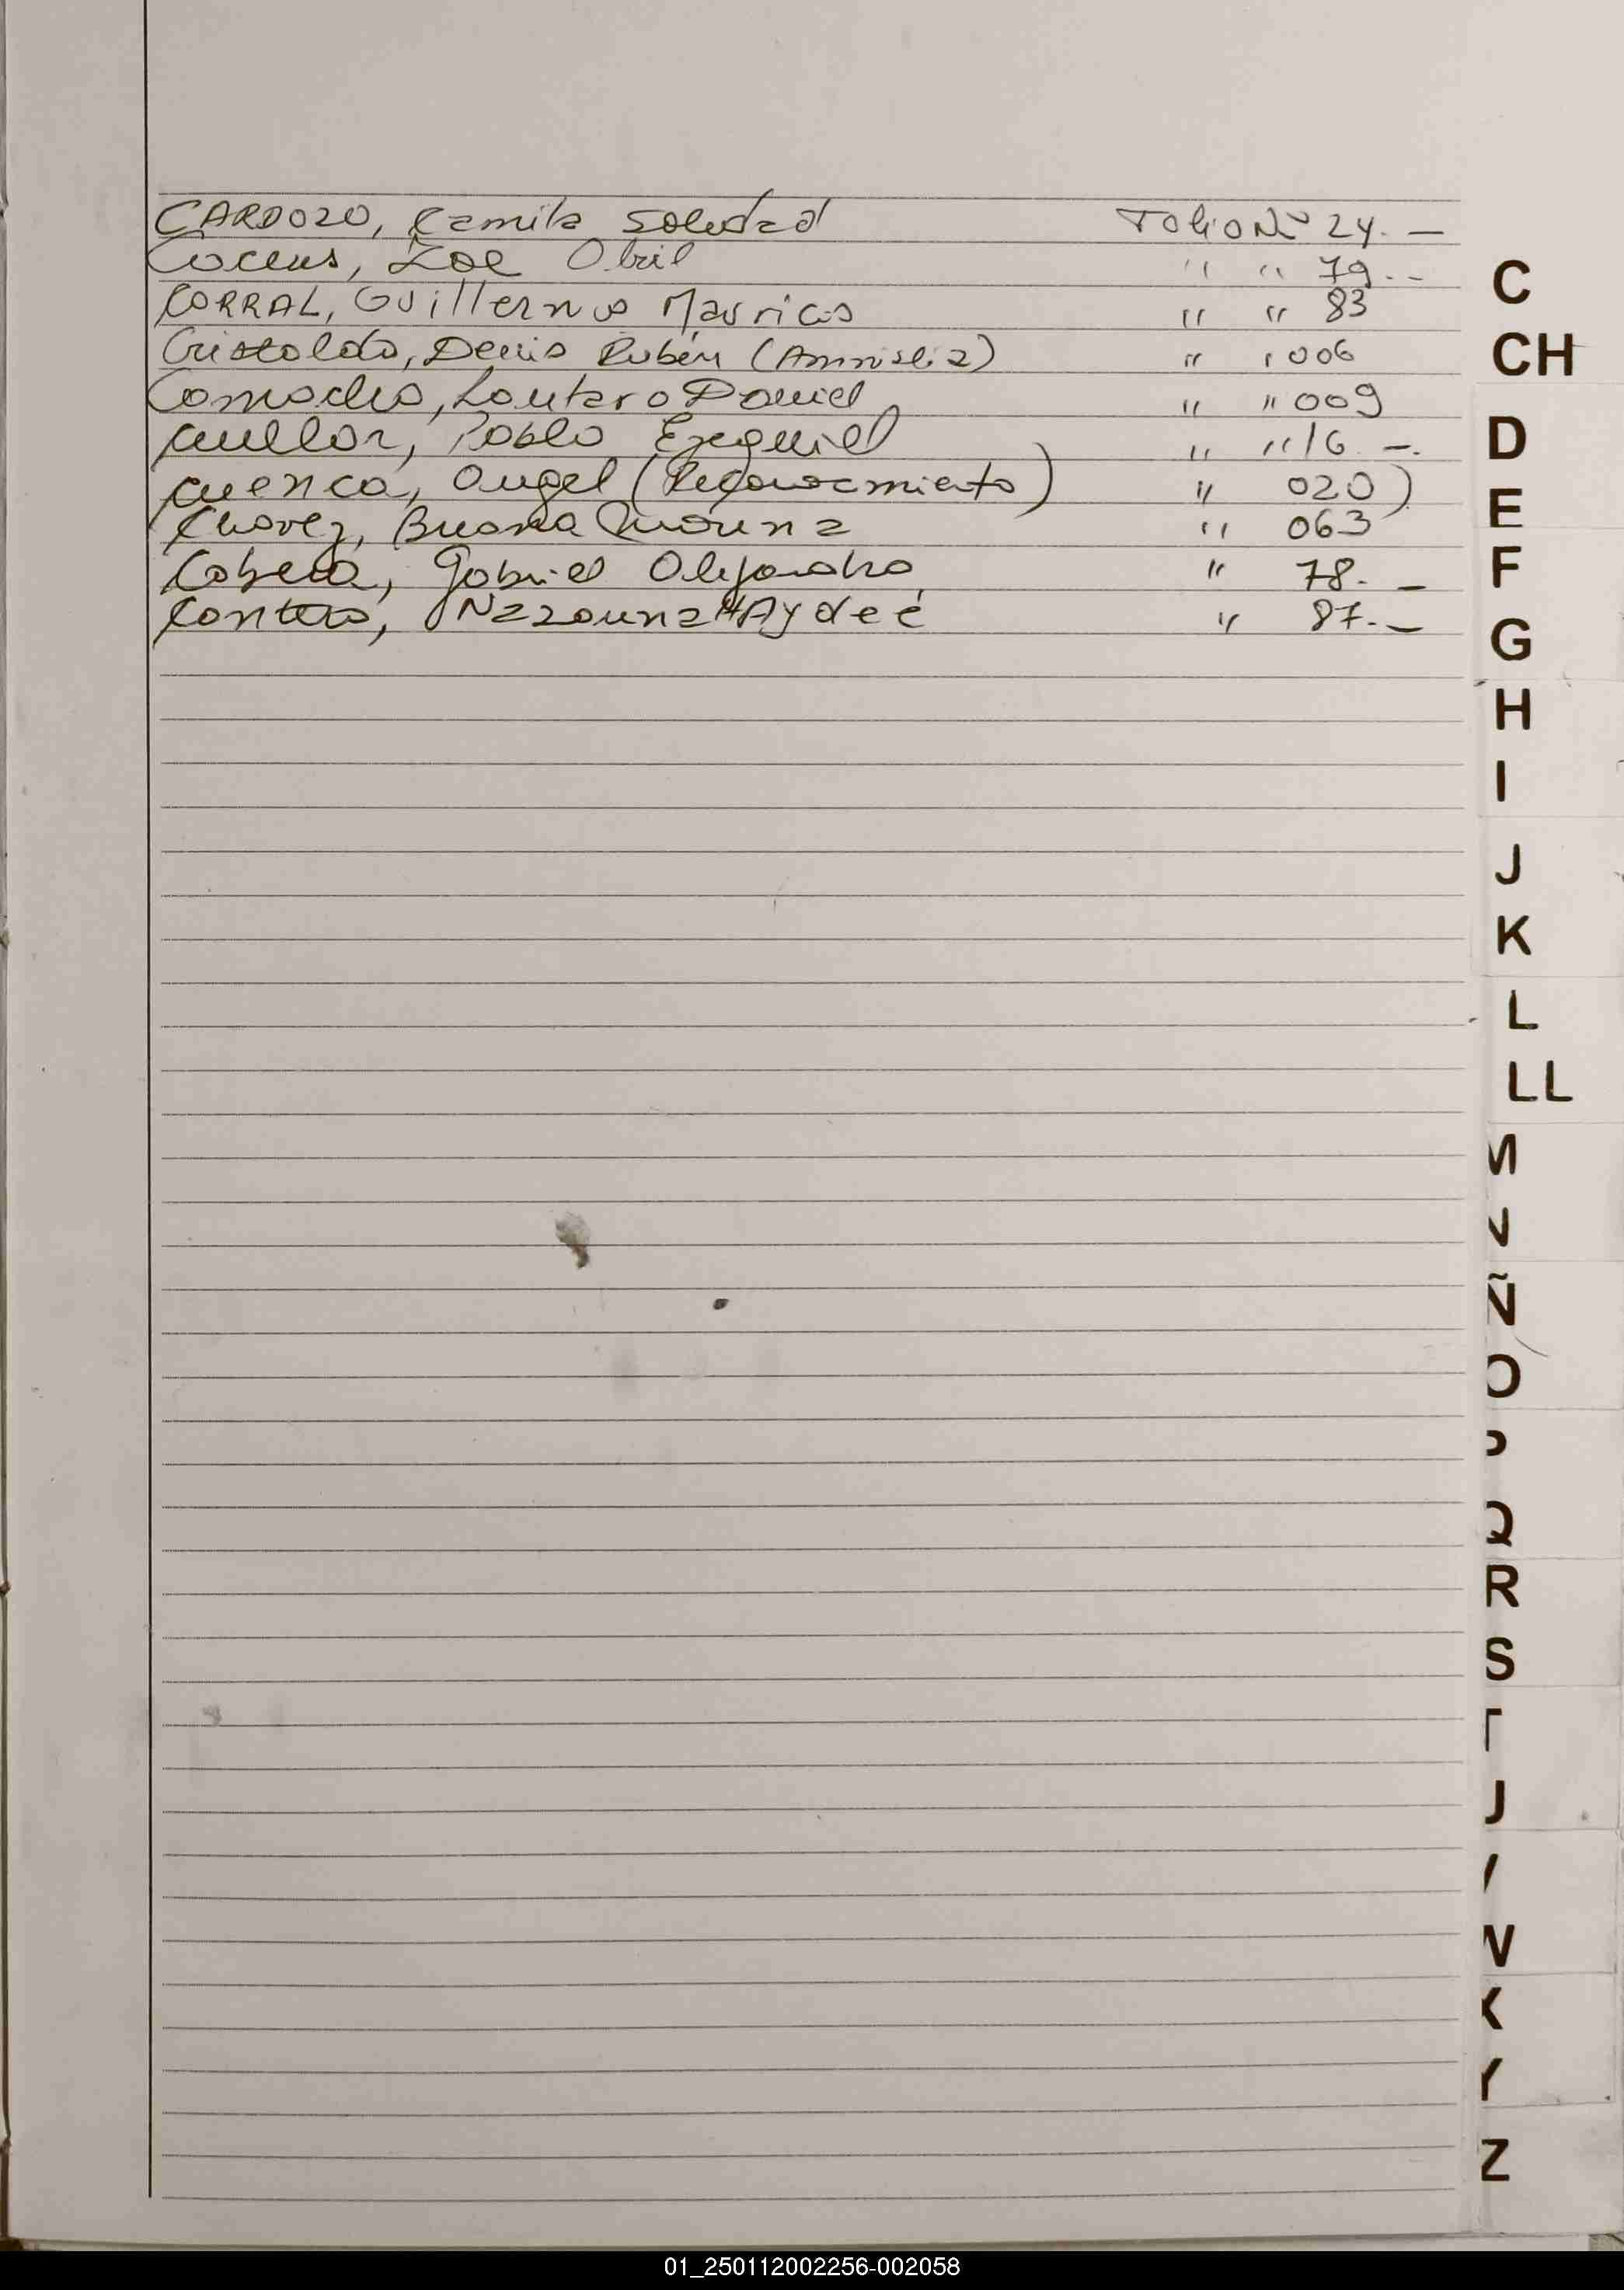 CARDOZO, Camila Soledad Folio Nº 24.-
Zoe Abril " " 79.--
CORRAL, Guillermo Mauricio " " 83
Cristaldo, Denis Rubén (Amnistia) " " 006
Camacho, Lautaro Daniel " " 009
Cuellar, Pablo Ezequiel " " 16 -.
Cuenca, Angel (Reconocimiento) " 020)
Chavez, Morena " 063
Gabriel Alejandro " 78.-
Haydeé " 87.-
C
CH
D
E
F
G
H
I
J
K
L
LL
M
N
Ñ
O
P
Q
R
S
T
U
V
W
X
Y
Z
01_250112002256-002058